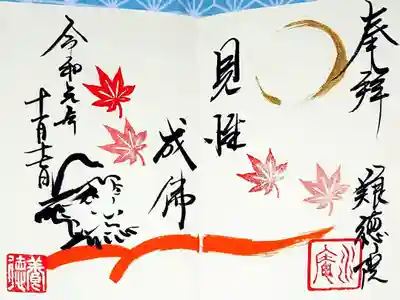 奉拝
養徳院
見性
成佛
令和元年
十一月十七日
養徳